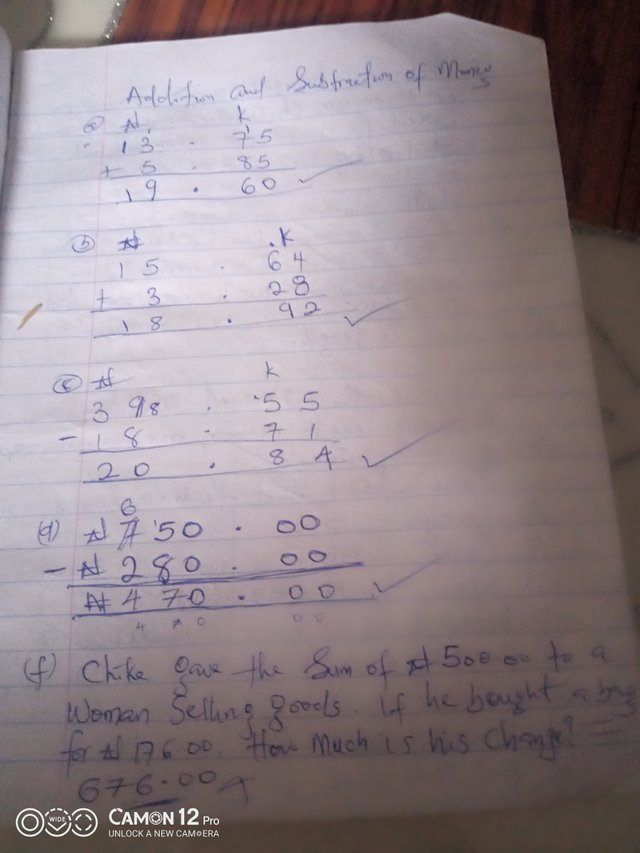 Addition and Subtraction of Money
(a) ₦ K
13 . 75
+ 5 . 85
19 . 60
(b) ₦ .K
15 . 64
+ 3 . 28
18 . 92
(c) ₦ K
3 98 . 55
- 18 . 71
20 . 84
6
(d) ₦ 750 . 00
- ₦ 280 . 00
₦ 470 . 00
4 7 0 00
(f) Chike gave the Sum of ₦ 500 00 to a
Woman Selling goods. If he bought a bag
for ₦ 176 00. How Much is his Change? =
676.00
WIDE
CAMON 12 Pro
UNLOCK A NEW CAMERA